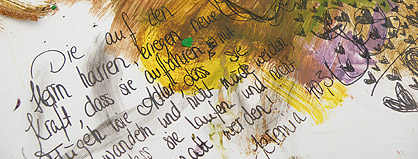 Die auf den
Herrn harren, kriegen neue
Kraft, dass sie auffahren mit
Flügeln wie Adler, dass sie
wandeln und nicht müde werden
dass sie laufen und nicht
matt werden!
40,31
Jeremia